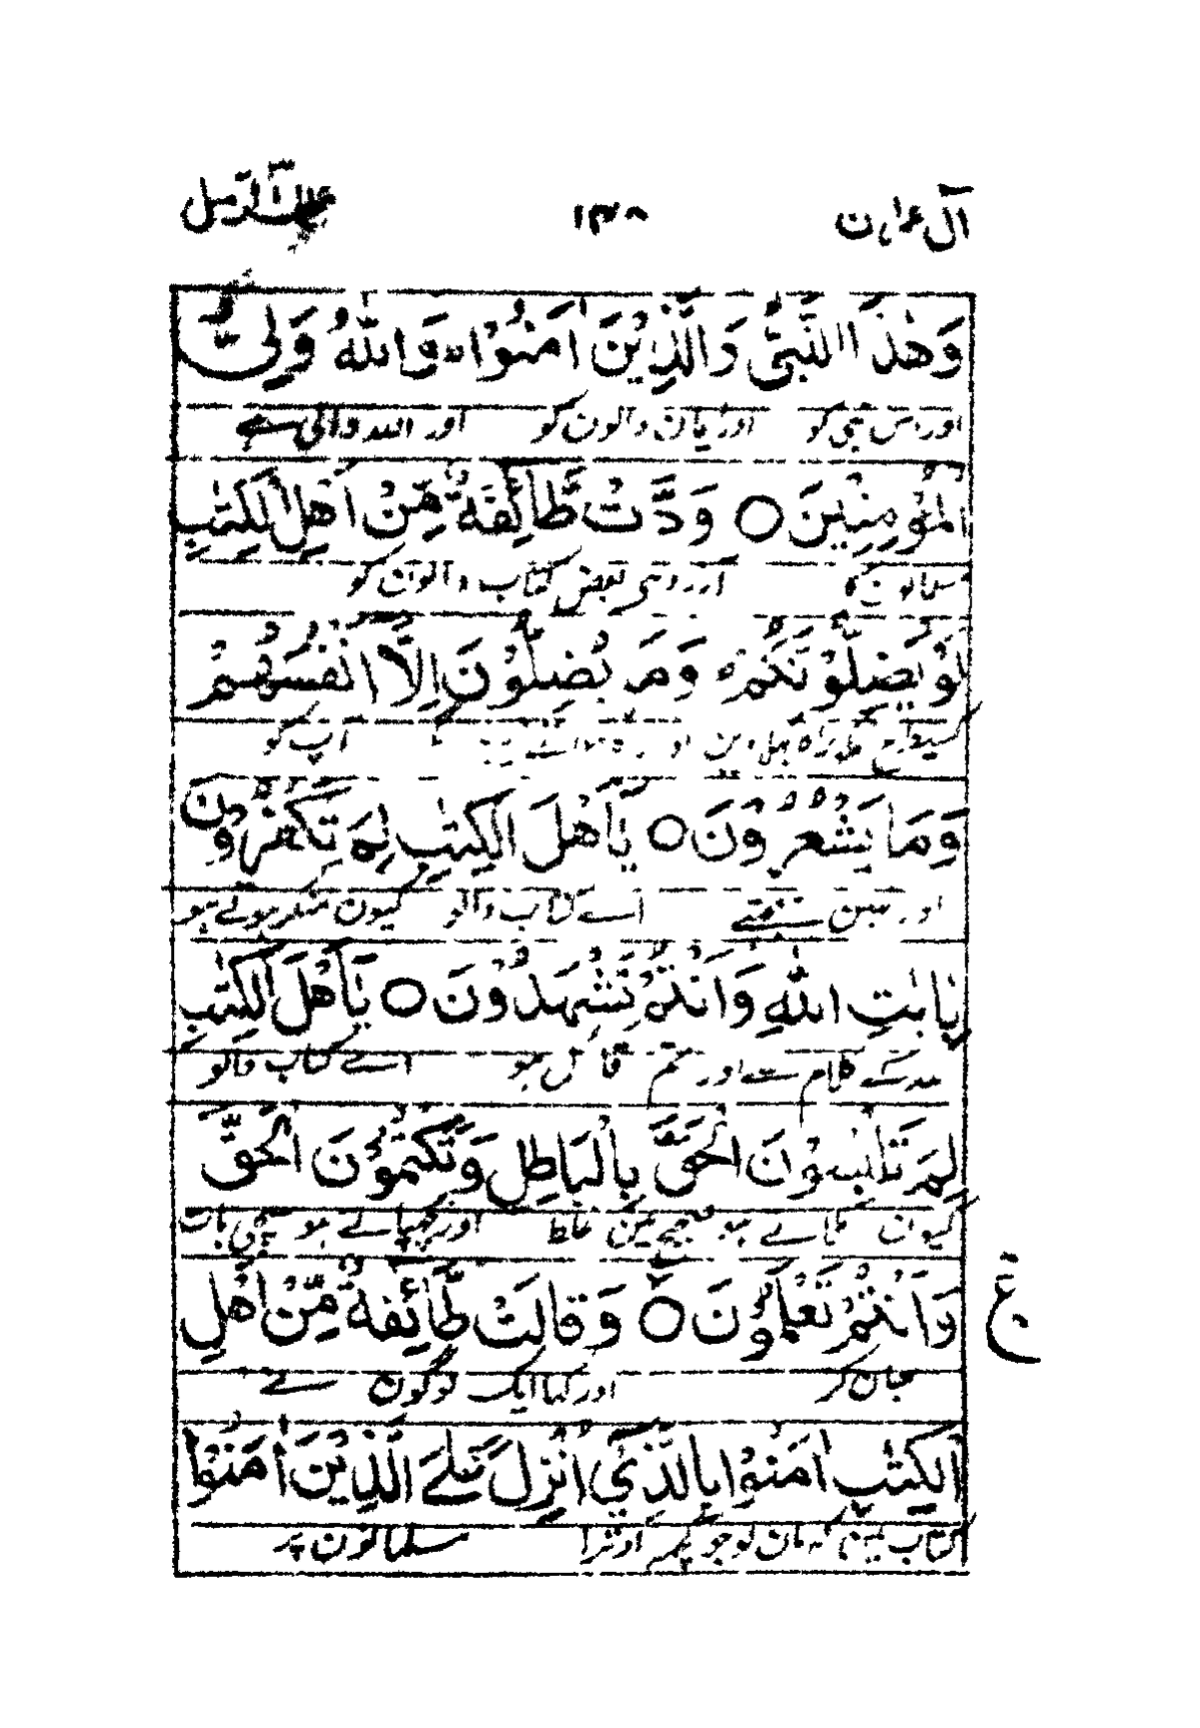 آل عمران ۱۳۸ تلك الرسل
وَهٰذَا النَّبِيُّ وَالَّذِيْنَ اٰمَنُوْا ؕ وَاللّٰهُ وَلِيُّ
اور اس نبی کو اور ایمان والون کو اور الله والی ہے
الْمُؤْمِنِيْنَ ○ وَدَّتْ طَّآئِفَةٌ مِّنْ اَهْلِ الْكِتٰبِ
مسلمانون کا آرزو ہی بعض کتاب والون کو
لَوْ يُضِلُّوْنَكُمْ ؕ وَمَا يُضِلُّوْنَ اِلَّا اَنْفُسَهُمْ
کسیطرح تم کو راہ آپ کو
وَمَا يَشْعُرُوْنَ ○ يٰۤاَهْلَ الْكِتٰبِ لِمَ تَكْفُرُوْنَ
اور نہین سمجھتے اے کتاب والو کیون منکر ہوتے ہو
بِاٰيٰتِ اللّٰهِ وَاَنْتُمْ تَشْهَدُوْنَ ○ يٰۤاَهْلَ الْكِتٰبِ
الله کے کلام سے اور تم قائل ہو اے کتاب والو
لِمَ تَلْبِسُوْنَ الْحَقَّ بِالْبَاطِلِ وَتَكْتُمُوْنَ الْحَقَّ
کیون ملاتے ہو صحیح مین غلط اور چھپاتے ہو سچی بات
وَاَنْتُمْ تَعْلَمُوْنَ ○ وَقَالَتْ طَّآئِفَةٌ مِّنْ اَهْلِ
ع
جان کر اور کہا ایک لوگون نے
الْكِتٰبِ اٰمِنُوْا بِالَّذِيْۤ اُنْزِلَ عَلَى الَّذِيْنَ اٰمَنُوْا
کتاب مین کہ مان لو جو کچھ اوترا مسلمانون پر